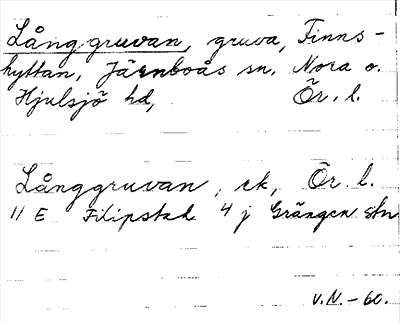 Långgruvan, gruva, Finns-
hyttan, Järnboås sn, Nora o.
Hjulsjö hd, Ör. l.
Långgruvan, ek, Ör. l.
11 E Filipstad 4 j Grängen stn
V.N. - 60.